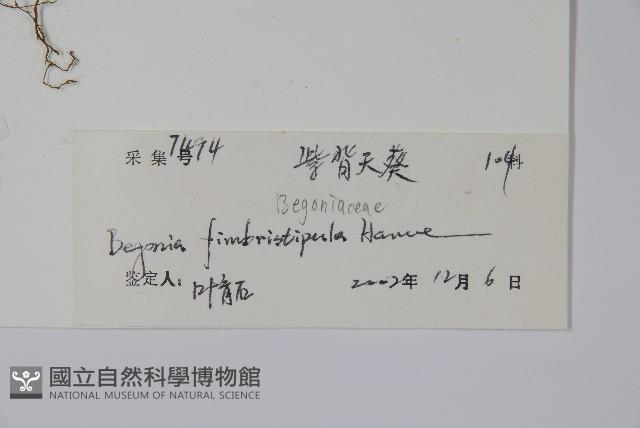 采集号 7494 紫背天葵 104科
Begoniaceae
Begonia fimbristipula Hance
鉴定人: 叶育石 2002年 12月 6日
國立自然科學博物館
NATIONAL MUSEUM OF NATURAL SCIENCE